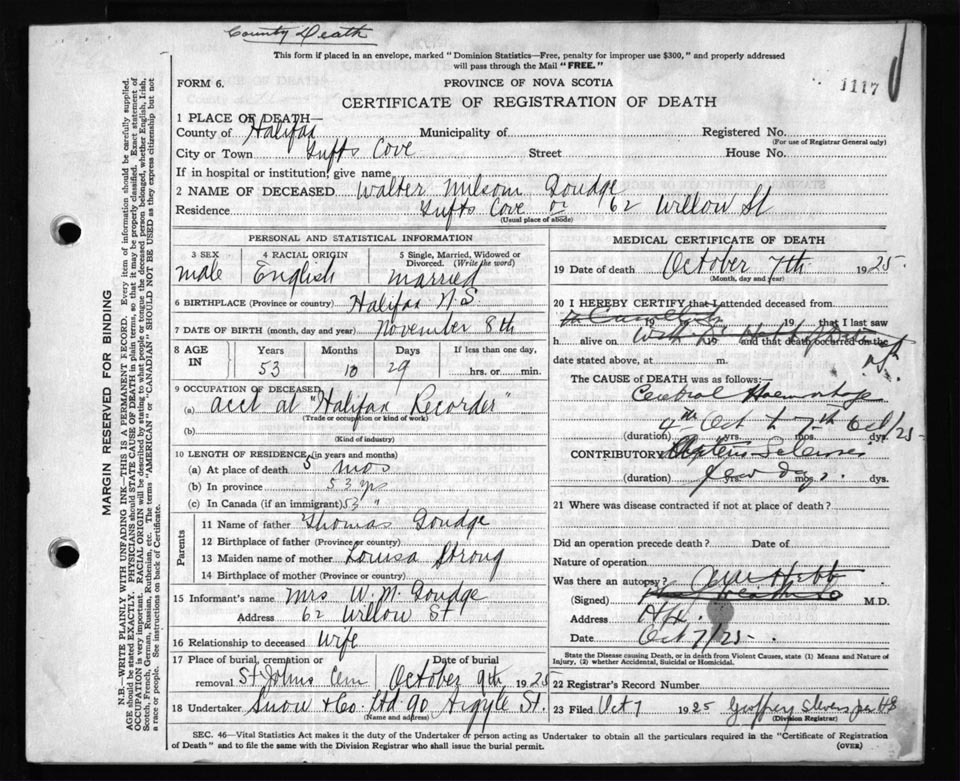 County Death
This form if placed in an envelope, marked "Dominion Statistics—Free, penalty for improper use $300," and properly addressed
will pass through the Mail "FREE."
FORM 6.
PROVINCE OF NOVA SCOTIA
1117
CERTIFICATE OF REGISTRATION OF DEATH
1 PLACE OF DEATH—
County of Halifax Municipality of Registered No.
(For use of Registrar General only)
City or Town Tufts Cove Street House No.
If in hospital or institution, give name
2 NAME OF DECEASED Walter Milsom Goudge
Residence Tufts Cove or 62 Willow St
(Usual place of abode)
PERSONAL AND STATISTICAL INFORMATION
3 SEX 4 RACIAL ORIGIN 5 Single, Married, Widowed or
Divorced. (Write the word)
male English married
6 BIRTHPLACE (Province or country) Halifax N.S.
7 DATE OF BIRTH (month, day and year) November 8th
8 AGE IN Years Months Days If less than one day,
53 10 29 hrs. or min.
9 OCCUPATION OF DECEASED
(a) acct at "Halifax Recorder"
(Trade or occupation or kind of work)
(b)
(Kind of industry)
10 LENGTH OF RESIDENCE (in years and months)
(a) At place of death 5 mos
(b) In province 53 yrs
(c) In Canada (if an immigrant) 53 "
Parents
11 Name of father Thomas Goudge
12 Birthplace of father (Province or country)
13 Maiden name of mother Louisa Strong
14 Birthplace of mother (Province or country)
15 Informant's name Mrs W. M. Goudge
Address 62 Willow St
16 Relationship to deceased Wife
17 Place of burial, cremation or Date of burial
removal St Johns Cem October 9th 1925
18 Undertaker Snow & Co. Ltd 90 Argyle St.
(Name and address)
MEDICAL CERTIFICATE OF DEATH
19 Date of death October 7th 1925.
(Month, day and year)
20 I HEREBY CERTIFY that I attended deceased from
19 19 , that I last saw
h alive on 19 and that death occurred on the
date stated above, at m.
The CAUSE OF DEATH was as follows:—
Cerebral Haemorrhage
4th Oct to 7th Oct/25-
(duration) yrs. mos. dys.
CONTRIBUTORY
(duration) few days. yrs. mos. dys.
21 Where was disease contracted if not at place of death?
Did an operation precede death? Date of
Nature of operation
Was there an autopsy?
(Signed) Hebb M.D.
Address Hfx
Date Oct 7/25-
State the Disease causing Death, or in death from Violent Causes, state (1) Means and Nature of
Injury, (2) whether Accidental, Suicidal or Homicidal.
22 Registrar's Record Number
23 Filed Oct 7 1925 Geoffrey Stevens per HB
(Division Registrar)
SEC. 46—Vital Statistics Act makes it the duty of the Undertaker or person acting as Undertaker to obtain all the particulars required in the "Certificate of Registration
of Death" and to file the same with the Division Registrar who shall issue the burial permit.
(OVER)
MARGIN RESERVED FOR BINDING
N.B.—WRITE PLAINLY WITH UNFADING INK—THIS IS A PERMANENT RECORD. Every item of information should be carefully supplied.
AGE should be stated EXACTLY. PHYSICIANS should STATE CAUSE OF DEATH in plain terms, so that it may be properly classified. Exact statement of
OCCUPATION is very important. RACIAL ORIGIN will be described by stating to what people or tongue the deceased person belonged, whether English, Irish,
Scotch, French, German, Russian, Ruthenian, etc. The terms "AMERICAN" or "CANADIAN" SHOULD NOT BE USED as they express citizenship but not
a race or people. See instructions on back of Certificate.